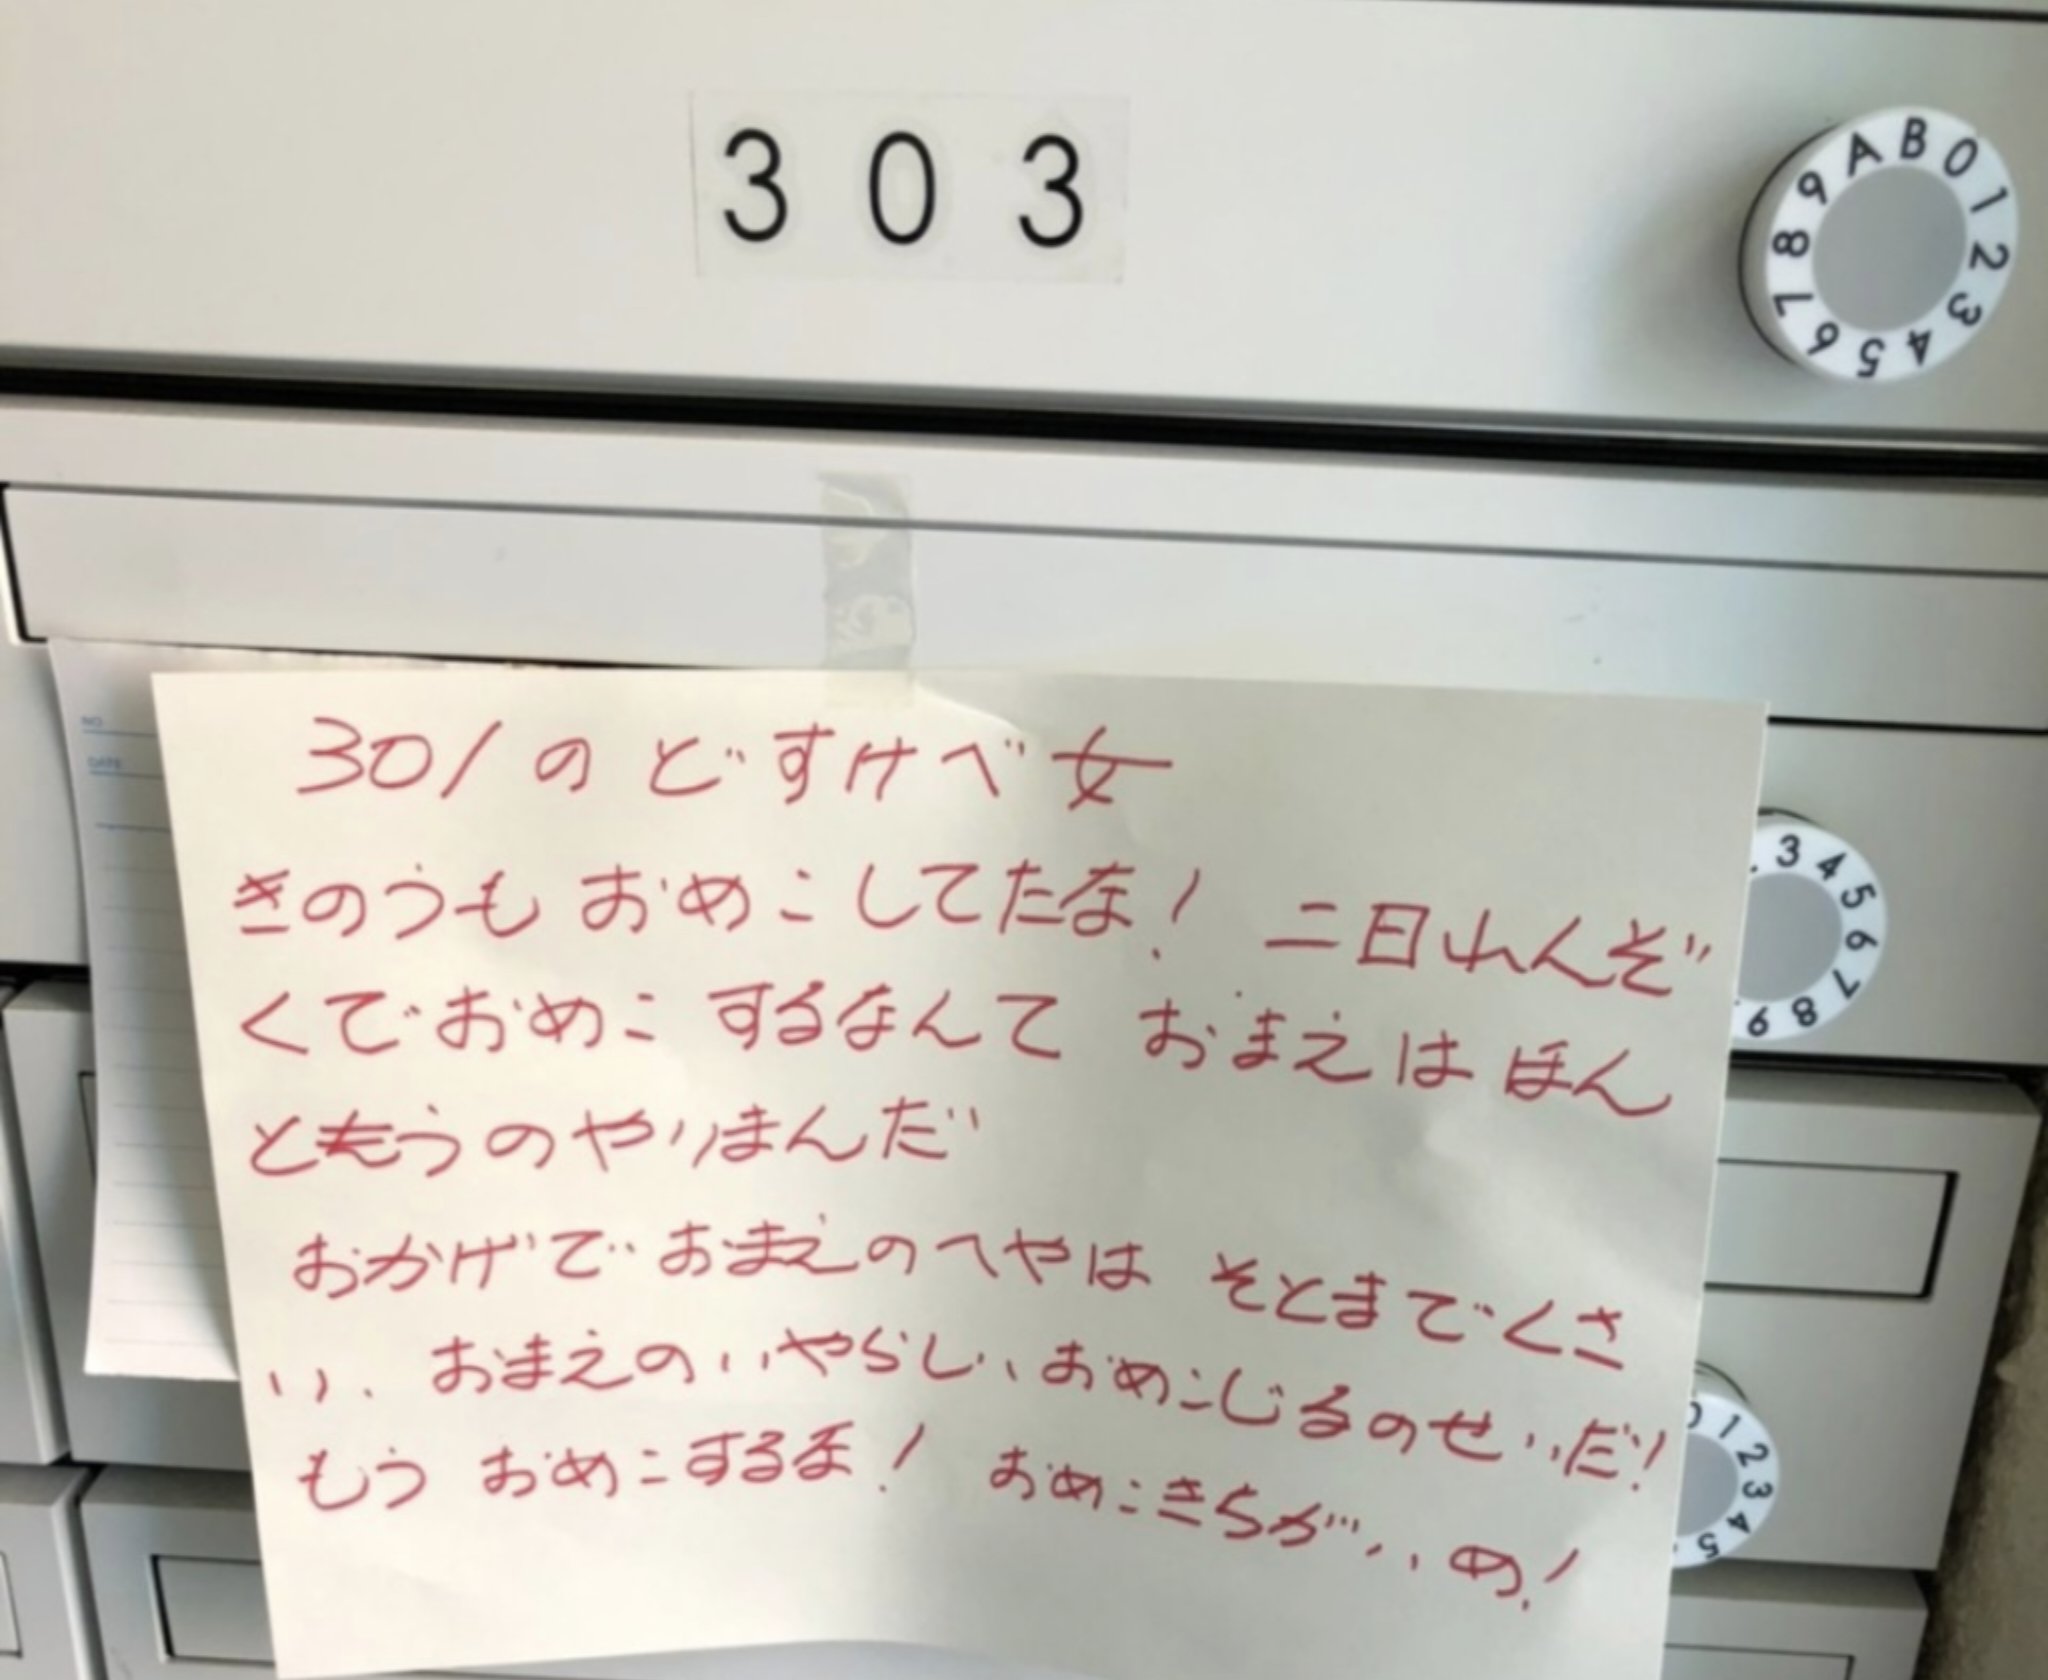 303
A B 0 1 2 3 4 5 6 7 8 9
NO.
DATE
301のどすけべ女
きのうもおめこしてたな! 二日れんぞ
くでおめこするなんて おまえはほん
ともうのやりまんだ
おかげでおまえのへやは そとまでくさ
い、おまえのいやらしいおめこじるのせいだ!
もう おめこするな! おめこきちがいめ!
3 4 5 6 7 8 9
0 1 2 3 4 5